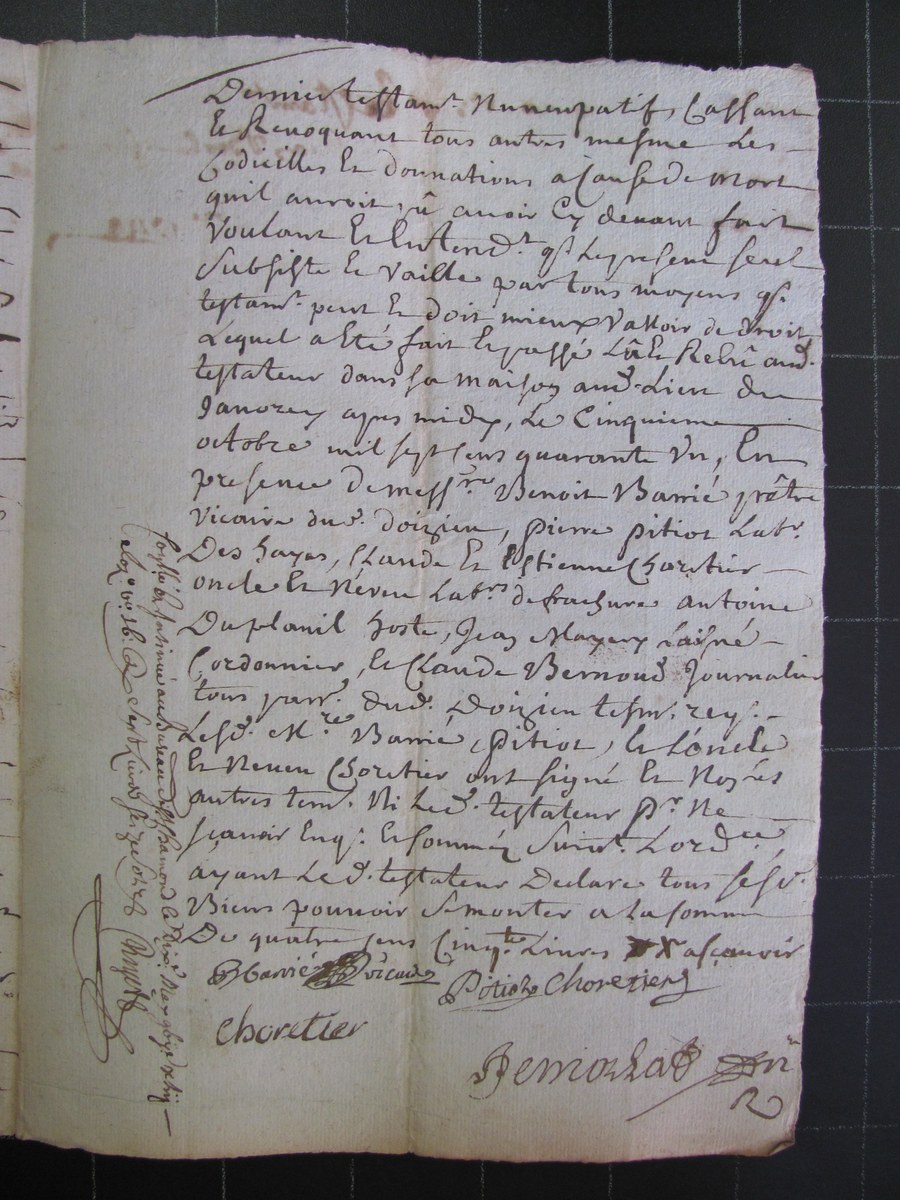 Dernier testamt. Nuncupatif, Cassant
Et Revoquant tous autres mesme Les
Codicilles Et donnations a Cause de mort
quil auroit, û avoir Cy devant fait
Voulant Et Entendt. qe. Le present seul
Subsiste Et Vaille par tous moyens qe.
testamt. peut Et doit mieux Valloir de droit
Lequel a Eté fait Et passé Lû Et Relû aud.
testateur dans sa maison aud. Lieu du
Janorey apres midy, Le Cinquieme
octobre mil sept Cens quarante Un, En
presence de messre. Benoit Barrié prêtre
vicaire dud. doizieu, pierre pitiot Labr.
Des hayes, Claude Et Estienne Choretier
oncle Et Neveu Labrs. de frachure antoine
Duplanil hoste, Jean Lainé
Cordonnier, Et Claude Bernoud Journalier
tous parr. dud. Doizieu tesm. reqs.
Lesd. Mre. Barrié, pitiot, Et L'oncle
Et Neveu Choretier ont signé Et Non Les
autres tem. Ni Led. testateur pr. Ne
sçavoir Enq. Et sommés Suivt. Lordce.
ayant Led. testateur Declaré tous sesd.
Biens pouvoir se monter a La somme
De quatre cens Cinqte. Livres a sçavoir
Barrié vicaire Pitiot Choretier
Choretier
R
Controllé Et Insinué au Bureau de St. Chamond Le
sept Livres seize sols